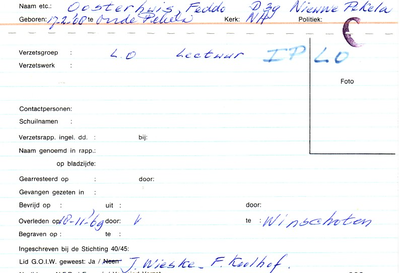 Naam etc.: Oosterhuis, Feddo Dzg Nieuwe Pekela
Geboren: 17.2.60 te Oude Pekela Kerk: NH Politiek:
Verzetsgroep : L.O Lectuur IP LO
Verzetswerk :
Foto
Contactpersonen:
Schuilnamen :
Verzetsrapp. ingel. dd. : bij:
Naam genoemd in rapp.:
op bladzijde:
Gearresteerd op : door:
Gevangen gezeten in :
Bevrijd op : uit : door:
Overleden op: 18-11-69 door: V te : Winschoten
Begraven op : te :
Ingeschreven bij de Stichting 40/45:
Lid G.O.I.W. geweest: Ja / Neen J. Wieske - F. Koolhof.